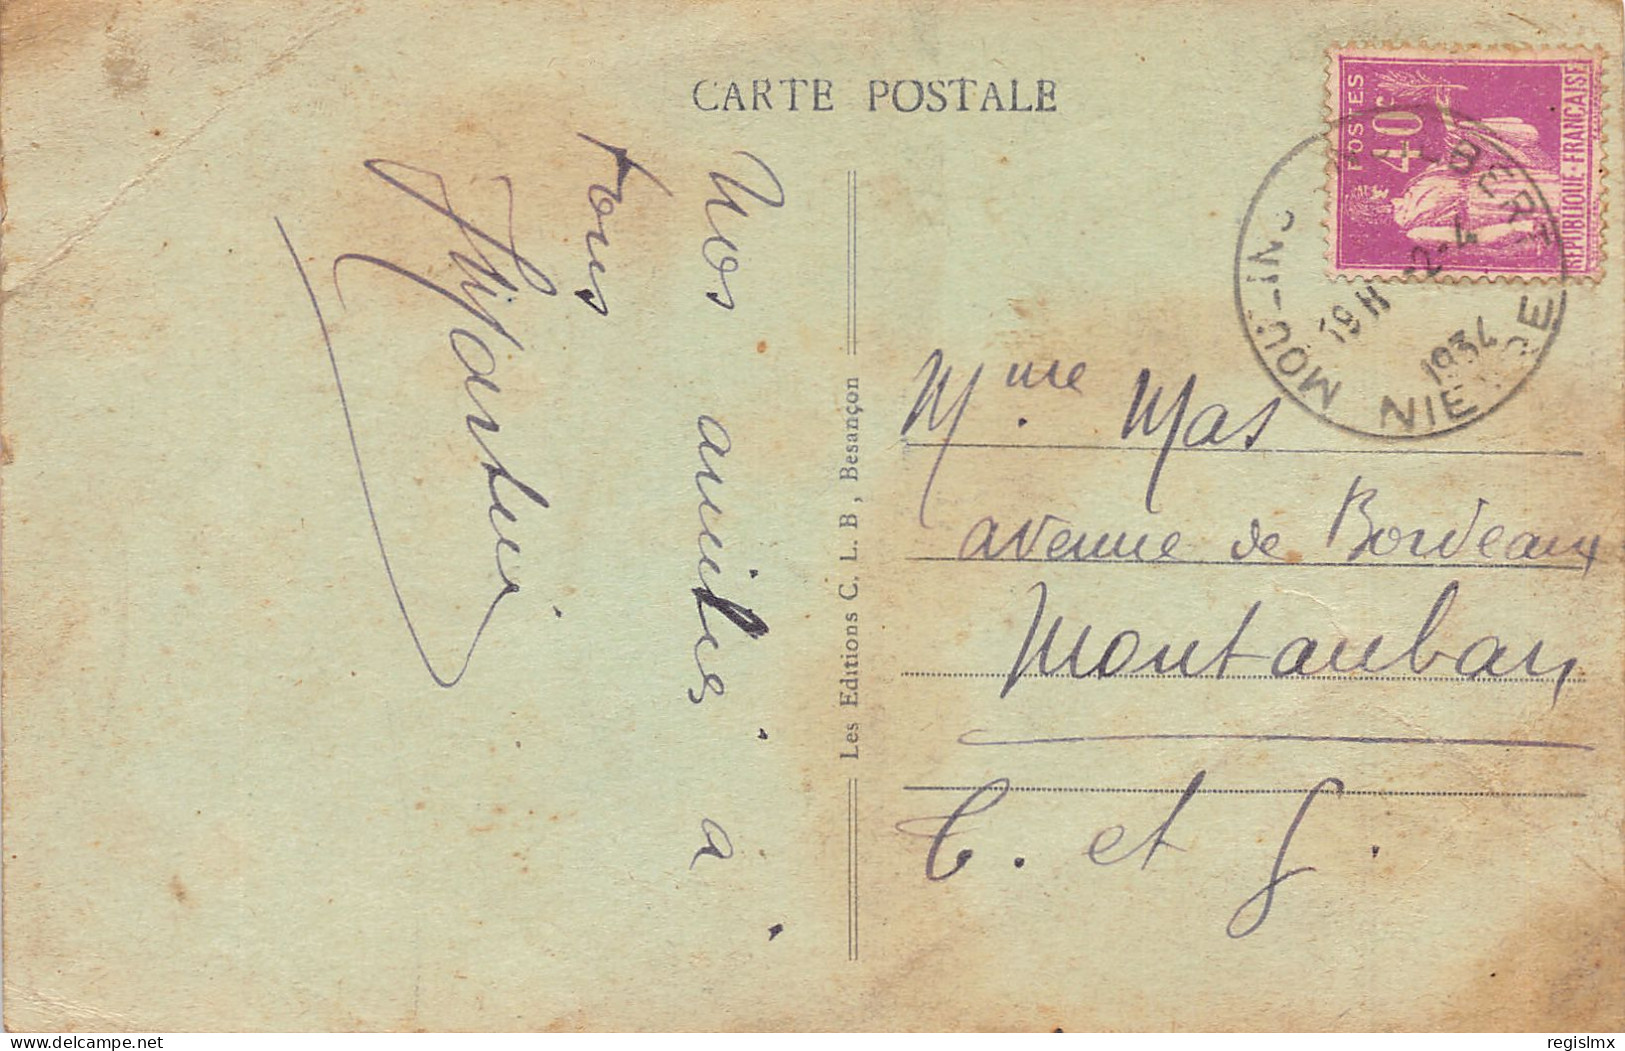 CARTE POSTALE
Nos amitiés à
tous
Les Editions C. L. B., Besançon
POSTES
40c
REPUBLIQUE-FRANÇAISE
19H 2-4
1934
Mme Mas
avenue de Bordeaux
Montauban
T. et G.
delcampe.net
regislmx